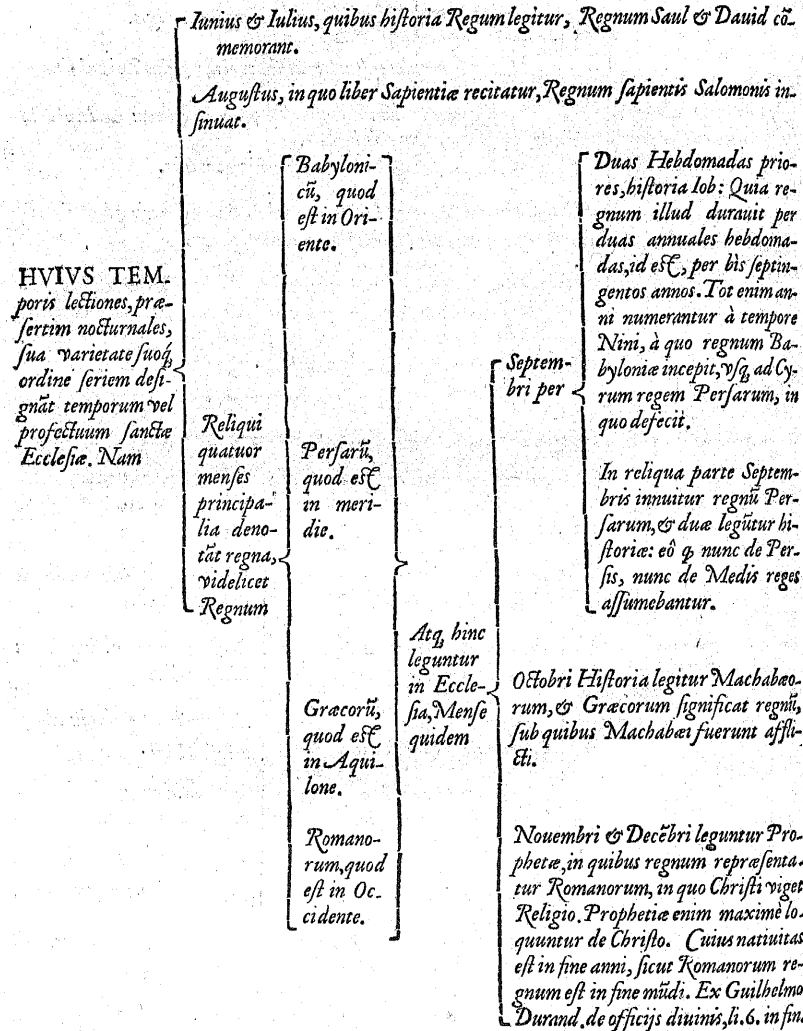 HVIVS TEM-
poris lectiones, præ-
ſertim nocturnales,
ſua varietate ſuoq́;
ordine ſeriem deſi-
gnãt temporum vel
profectuum ſanctæ
Eccleſiæ. Nam
Iunius & Iulius, quibus hiſtoria Regum legitur, Regnum Saul & Dauid cõ-
memorant.
Auguſtus, in quo liber Sapientiæ recitatur, Regnum ſapientis Salomonis in-
ſinuat.
Reliqui
quatuor
menſes
principa-
lia deno-
tãt regna,
videlicet
Regnum
Babyloni-
cũ, quod
eſt in Ori-
ente.
Perſarũ,
quod eſt
in meri-
die.
Græcorũ,
quod eſt
in Aqui-
lone.
Romano-
rum, quod
eſt in Oc-
cidente.
Atq; hinc
leguntur
in Eccle-
ſia, Menſe
quidem
Septem-
bri per
Duas Hebdomadas prio-
res, hiſtoria Iob: Quia re-
gnum illud durauit per
duas annuales hebdoma-
das, id eſt, per bis ſeptin-
gentos annos. Tot enim an-
ni numerantur à tempore
Nini, à quo regnum Ba-
byloniæ incepit, vſq; ad Cy-
rum regem Perſarum, in
quo defecit.
In reliqua parte Septem-
bris innuitur regnũ Per-
ſarum, & duæ legũtur hi-
ſtoriæ: eô ꝙ nunc de Per-
ſis, nunc de Medis reges
aſſumebantur.
Octobri Hiſtoria legitur Machabæo-
rum, & Græcorum ſignificat regnũ,
ſub quibus Machabæi fuerunt affli-
cti.
Nouembri & Decẽbri leguntur Pro-
phetæ, in quibus regnum repræſenta-
tur Romanorum, in quo Chriſti viget
Religio. Prophetiæ enim maximè lo-
quuntur de Chriſto. Cuius natiuitas
eſt in fine anni, ſicut Romanorum re-
gnum eſt in fine mũdi. Ex Guilhelmo
Durand. de officijs diuinis, li. 6. in fin.